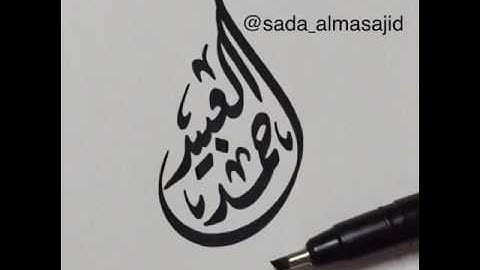 @sada_almasajid
احمد
العبيد